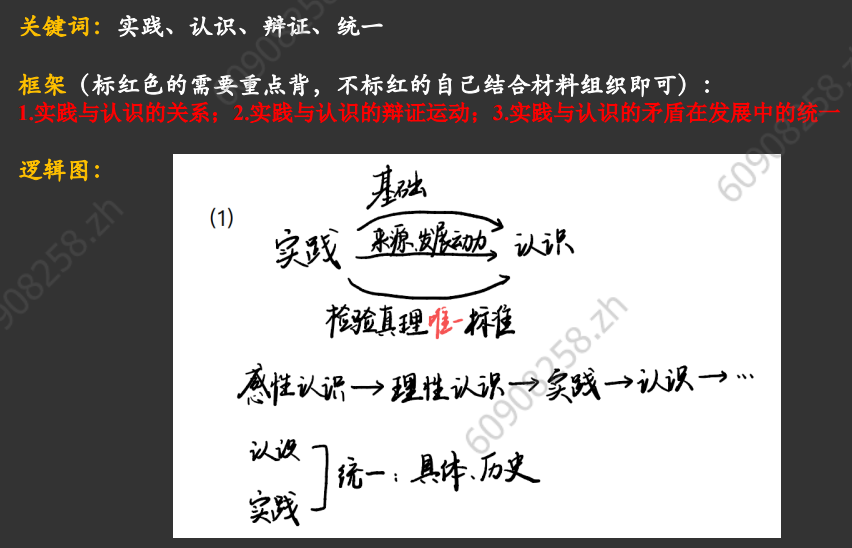 关键词：实践、认识、辩证、统一
框架（标红色的需要重点背，不标红的自己结合材料组织即可）：
1.实践与认识的关系；2.实践与认识的辩证运动；3.实践与认识的矛盾在发展中的统一
逻辑图：
(1)
基础
实践 来源、发展动力 认识
检验真理唯一标准
感性认识→理性认识→实践→认识→…
认识
实践
统一：具体、历史
60908258.zh
60908258.zh
60908258.zh
60908258.zh